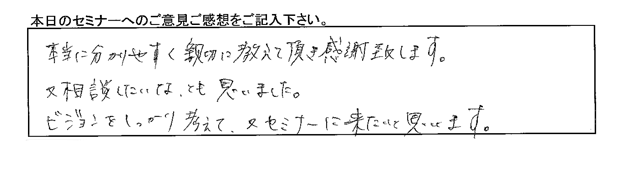 本日のセミナーへのご意見ご感想をご記入下さい。
本当に分かりやすく親切に教えて頂き感謝致します。
又相談したいな、とも思いました。
ビジョンをしっかり考えて、又セミナーに来たいと思います。